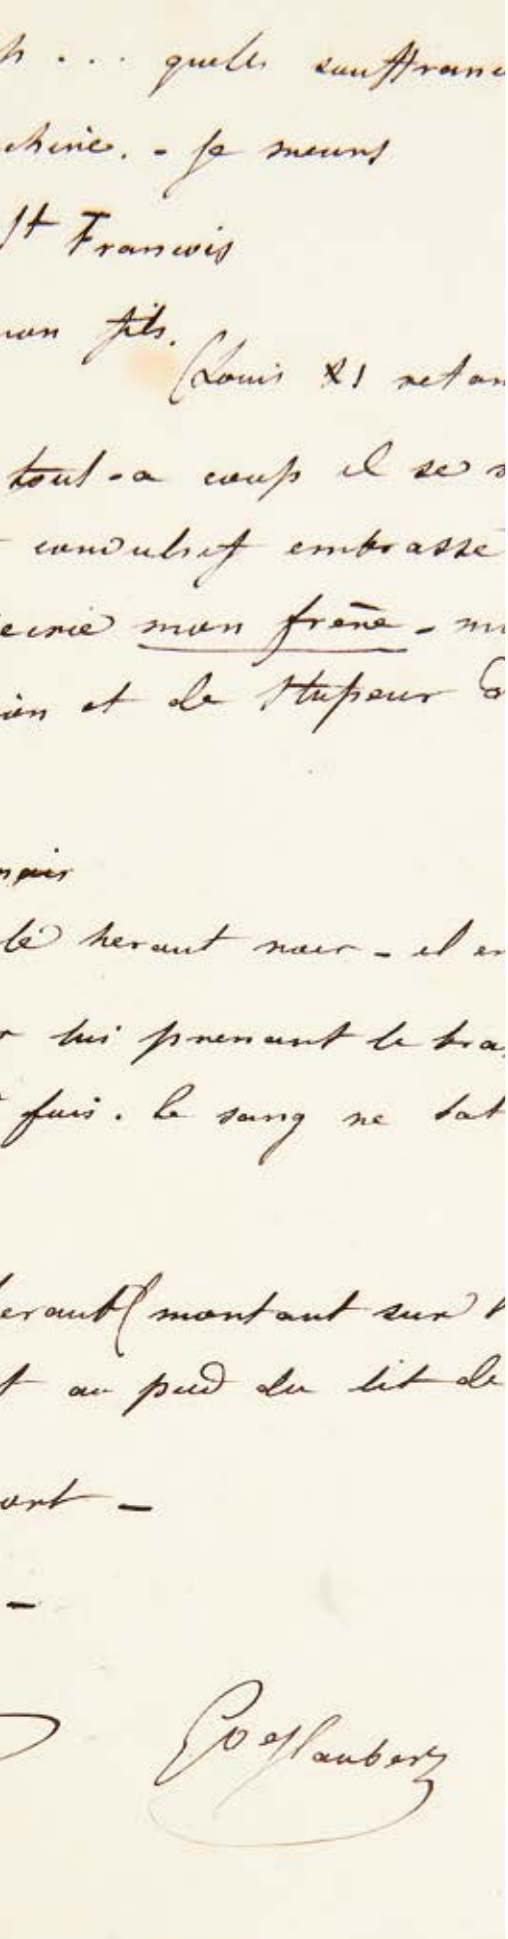 ... quelle souffranc
chirie. - je meurs
St Francois
mon fils.
(Louis XI retom
tout-a coup il se
convulsif embrasse
ecrie mon frère - m
ion et de stupeur
noir
le heraut noir - il en
lui prenant le bra
fois. le sang ne bat
heraut (montant sur
t au pied du lit de
ort -
-
Gve flaubert